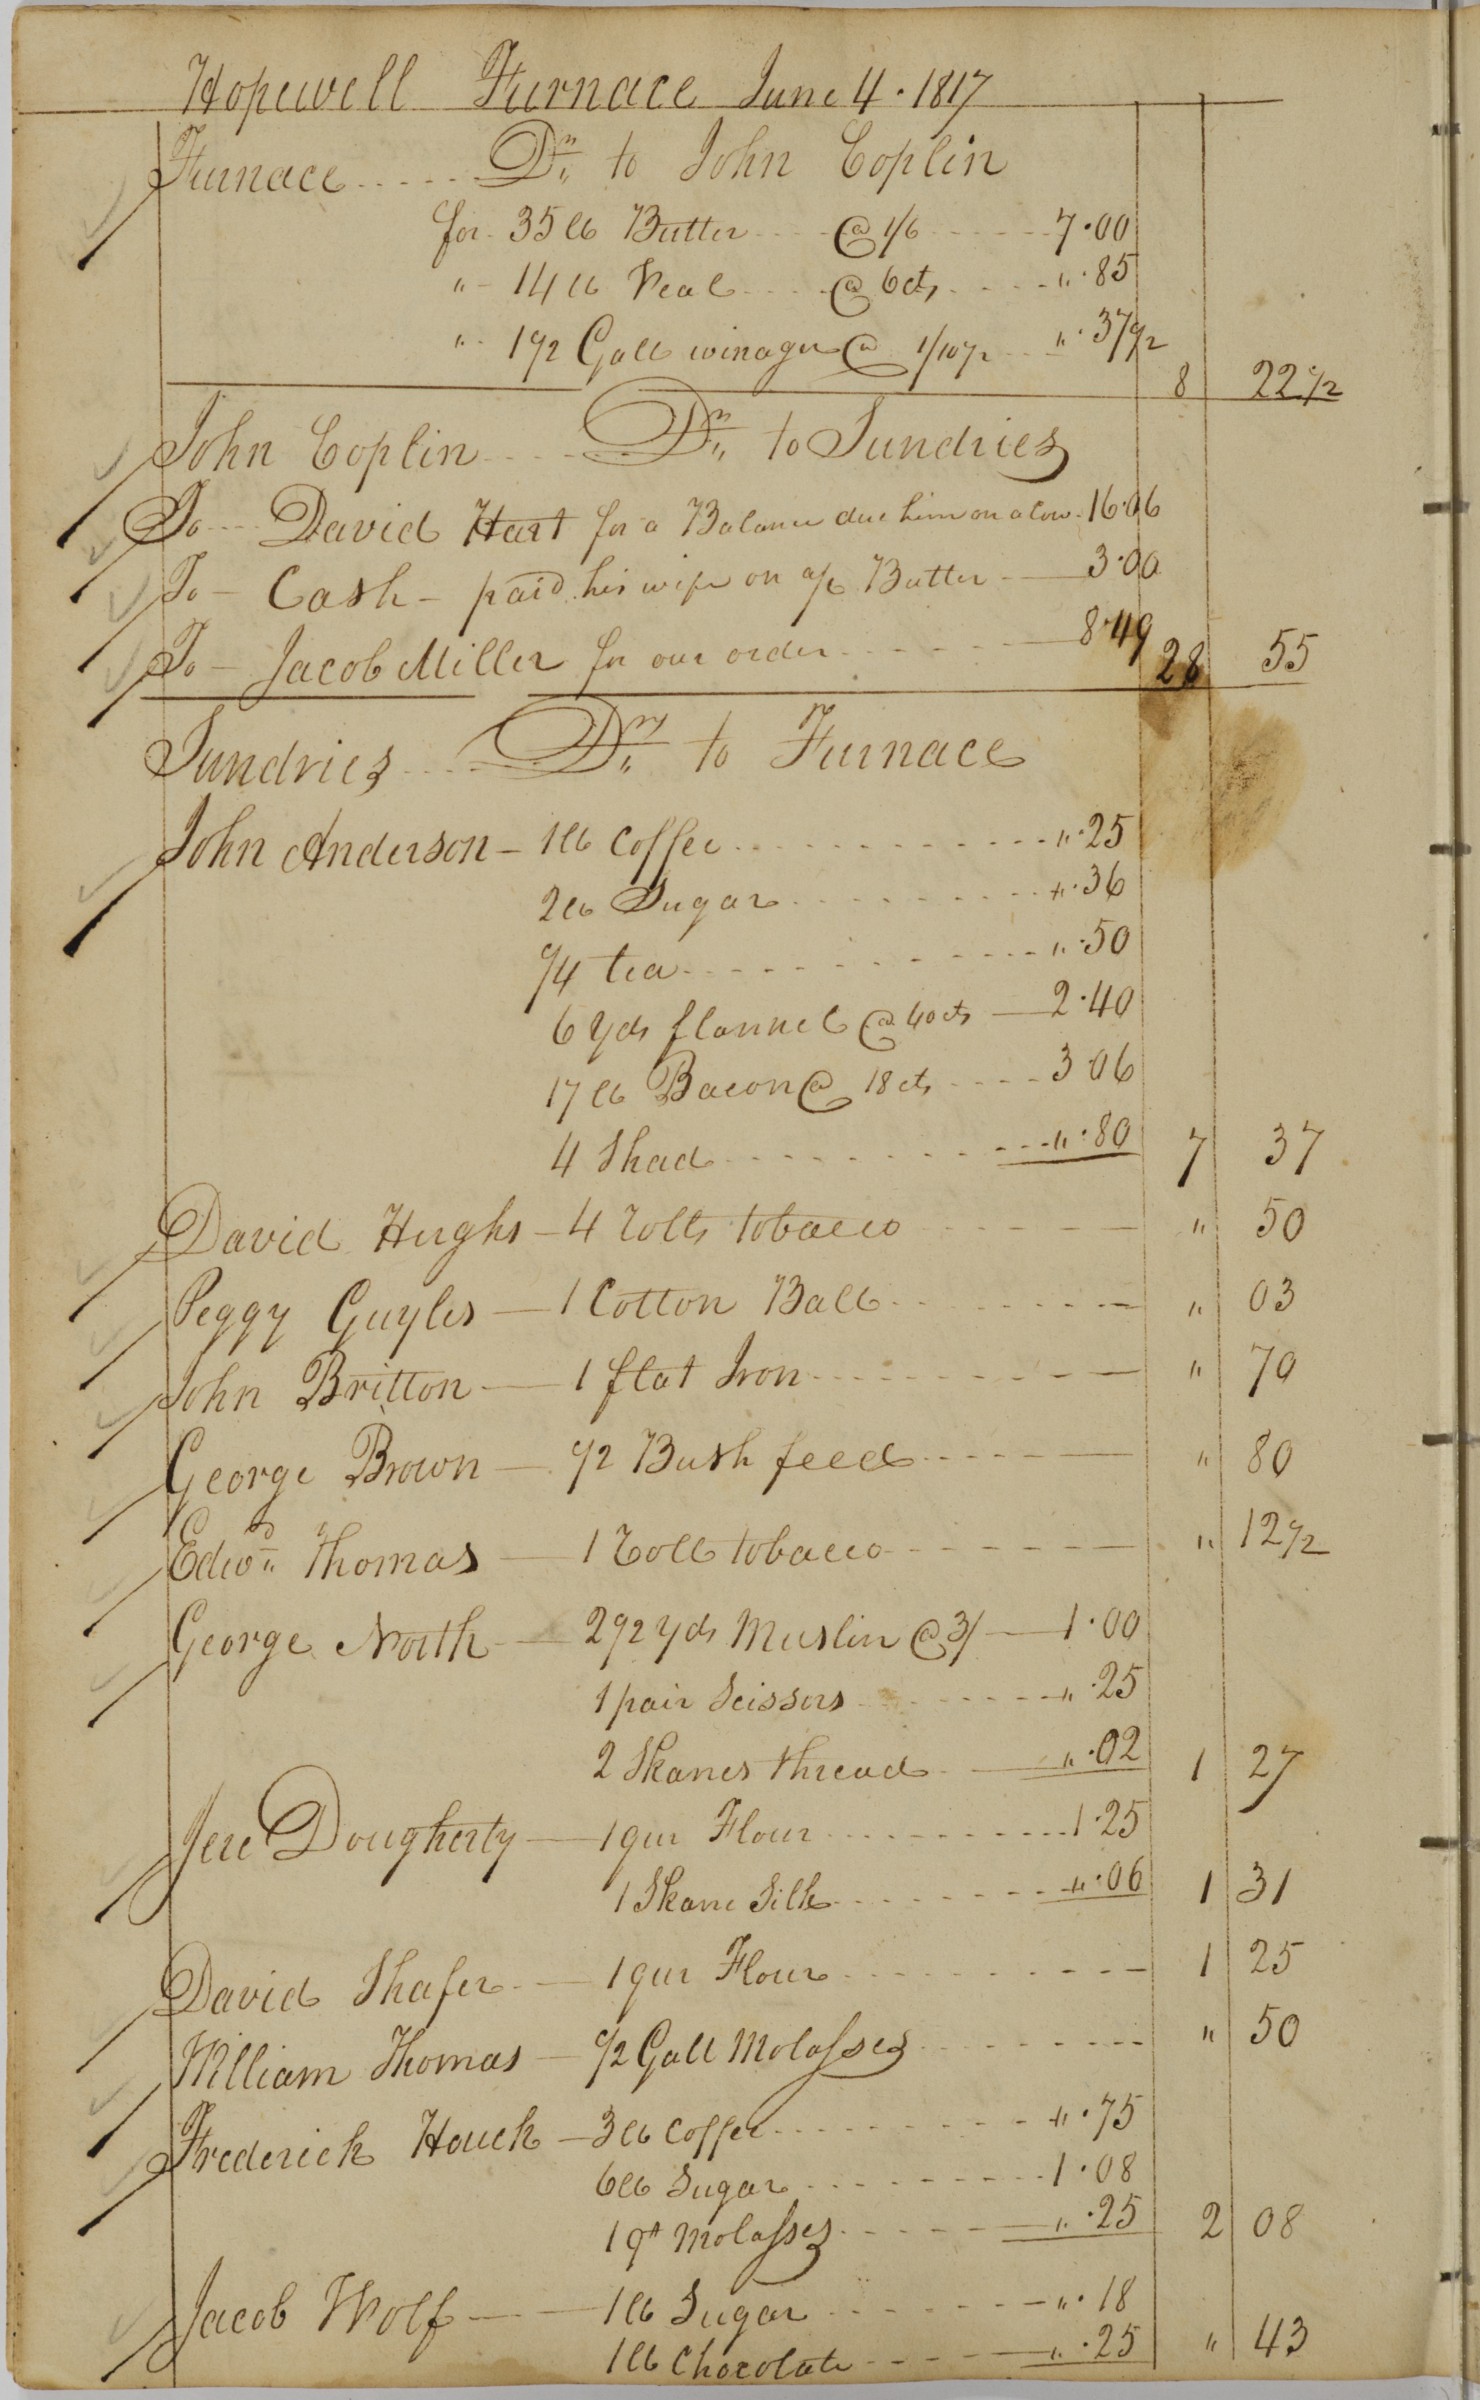 Hopewell Furnace June 4 · 1817
Furnace ..... Dr. to John Coplin
for 35 lb Butter ... @ 1/6 ... 7.00
" 14 lb Veal ... @ 6 cts ... " .85
" 1 1/2 Gall winager @ 1/10 1/2 ... " .37 1/2 8 22 1/2
John Coplin ..... Dr. to Sundries
To David Hart for a Balance due him on a Cow 16.06
To Cash paid his wife on a/c Butter 3.00
To Jacob Miller for our order 8.49 28 55
Sundries ..... Drs. to Furnace
John Anderson 1 lb Coffee " .25
2 lb Sugar " .36
1/4 tea " .50
6 yds flannel @ 40 cts 2.40
17 lb Bacon @ 18 cts 3.06
4 Shad " .80 7 37
David Hughs 4 rolls tobacco " 50
Peggy Guyles 1 Cotton Ball " 03
John Britton 1 flat Iron " 70
George Brown 1/2 Bush feed " 80
Edwd. Thomas 1 roll tobacco " 12 1/2
George North 2 1/2 yds Muslin @ 3/ 1.00
1 pair Scissors " .25
2 Skanes thread " .02 1 27
Jere Dougherty 1 qur Flour 1.25
1 Skane Silk " .06 1 31
David Shafer 1 qur Flour 1 25
William Thomas 1/2 Gall Molasses " 50
Frederick Houck 3 lb Coffee " .75
6 lb Sugar 1.08
1 qt Molasses " .25 2 08
Jacob Wolf 1 lb Sugar " .18
1 lb Chocolate " .25 " 43